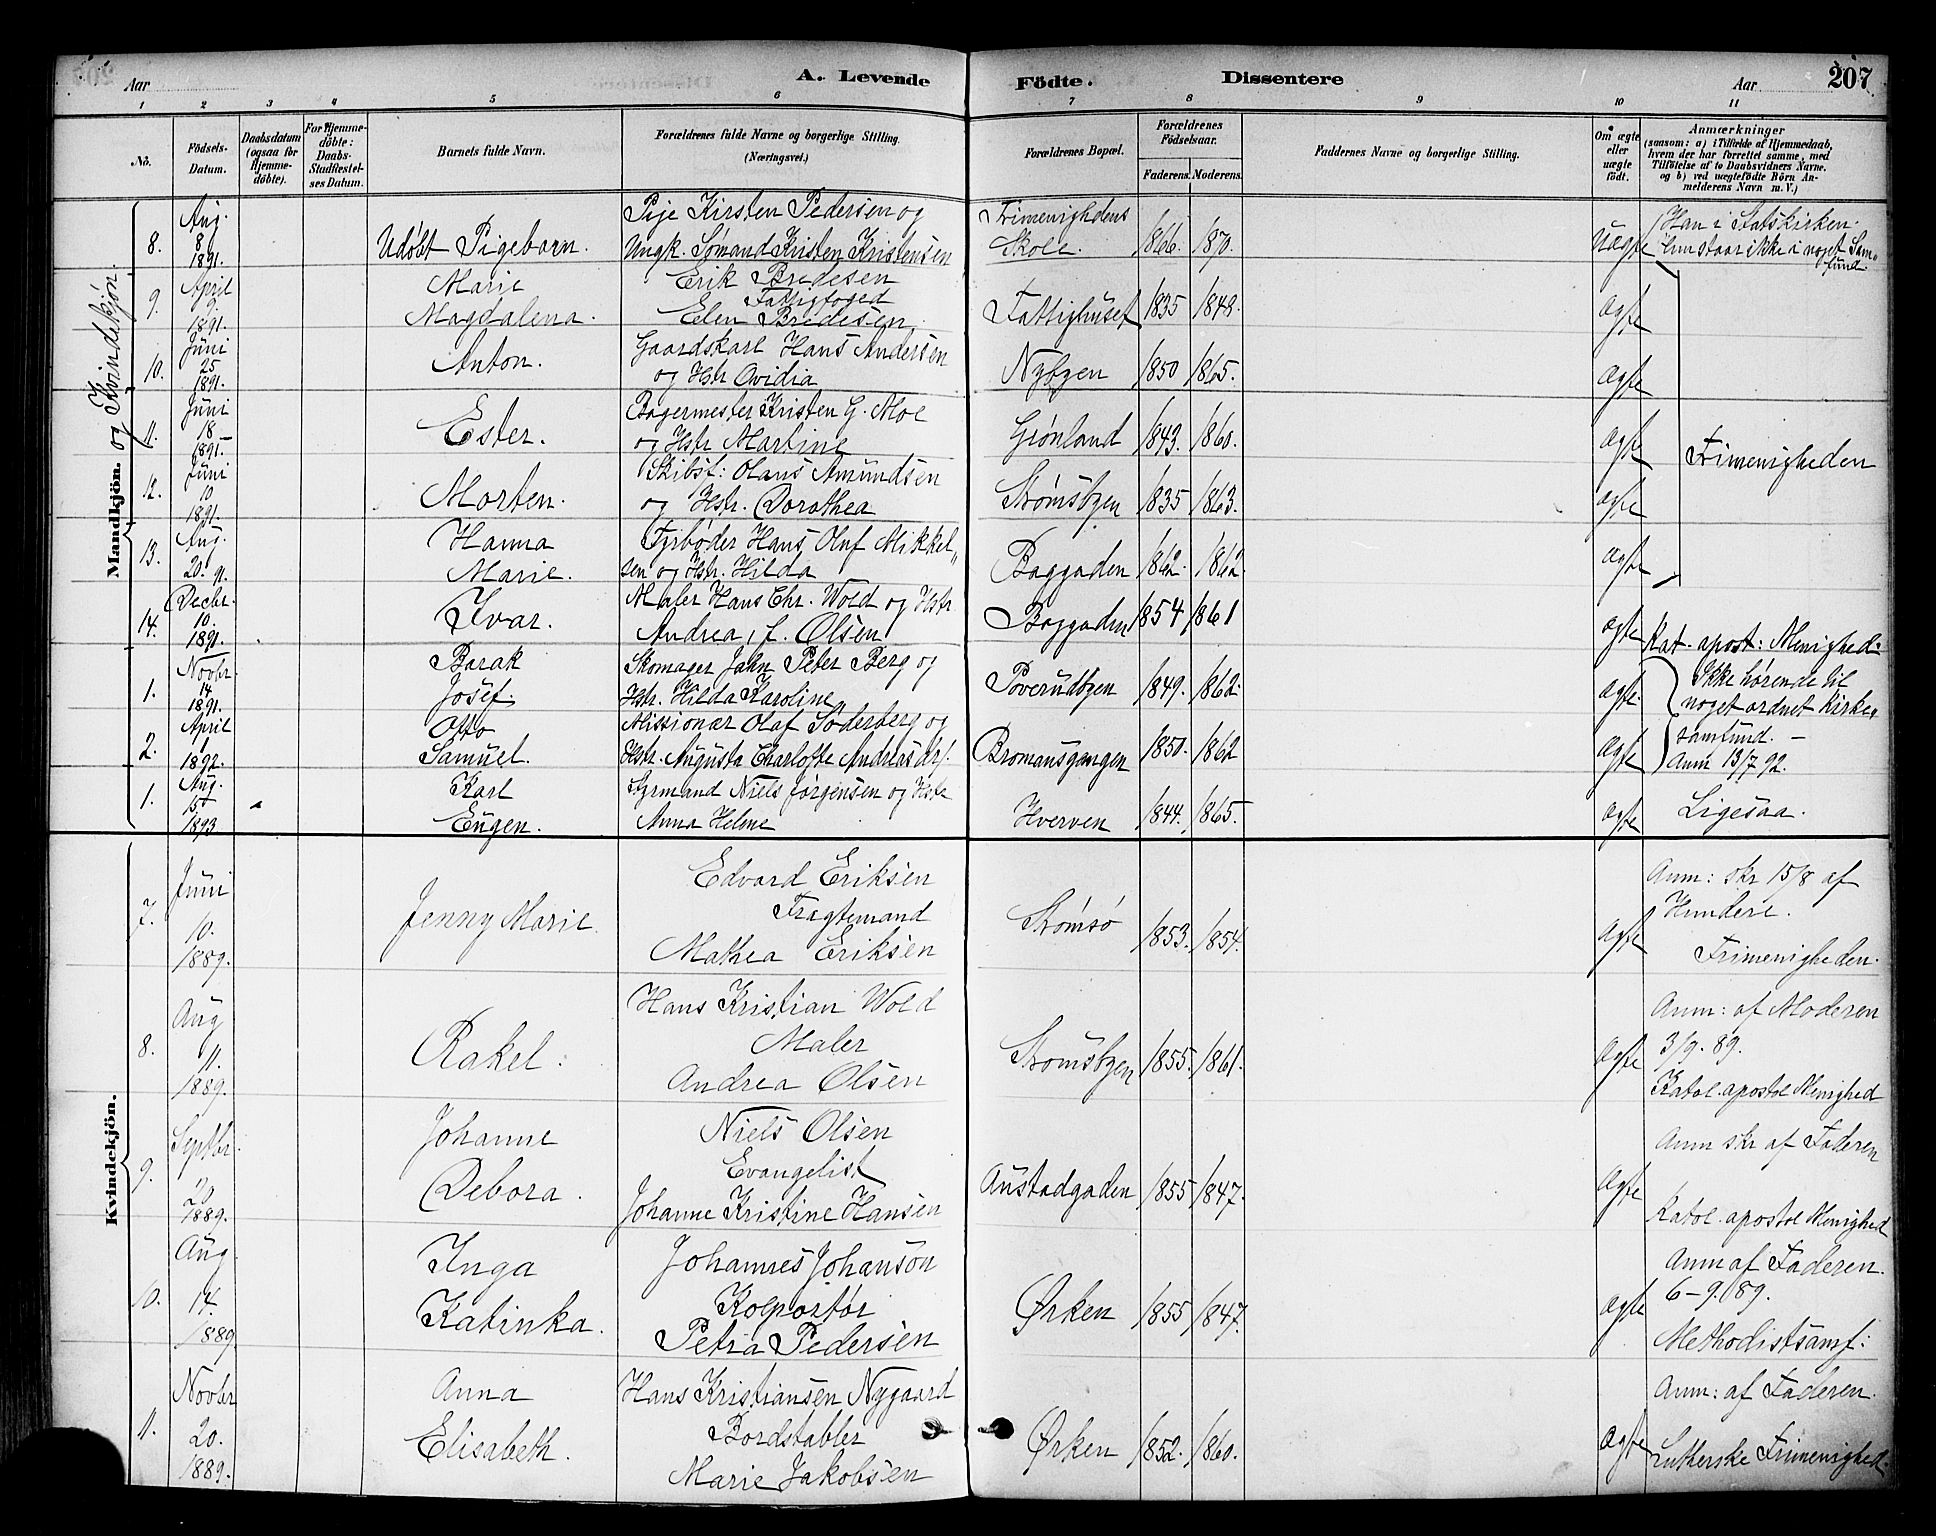 Aar
A. Levende Födte. Dissentere
Aar
207
1 2 3 4 5 6 7 8 9 10 11
No.
Födsels-Datum.
Daabsdatum (ogsaa for Hjemme-döbte).
For Hjemme-döbte: Daabs-Stadfæstel-ses Datum.
Barnets fulde Navn.
Forældrenes fulde Navne og borgerlige Stilling.
(Næringsvei.)
Forældrenes Bopæl.
Forældrenes Födselsaar.
Faderens. Moderens.
Faddernes Navne og borgerlige Stilling.
Om ægte eller uægte födt.
Anmærkninger
(saasom: a) i Tilfælde af Hjemmedaab,
hvem der har forrettet samme, med
Tilföielse af to Daabsvidners Navne.
og b) ved uægtefödte Börn An-
melderens Navn m. V.)
Mandkjön. og Kvindekjön.
8. Aug. 8 1891. Udøbt Pigebarn. Pige Kirsten Pedersen og
Ungk. Sømand Kristen Kristensen Frimenighedens Skole. 1866. 1870. Uægte Han i Statskirken.
Hun staar ikke i noget Sam-
fund.
9. April 9. 1891. Marie Magdalena. Erik Bredesen
Fattigfoged
Elen Bredesen. Fattighuset 1835 1848. ægte
10. Juni 25 1891. Anton. Gaardskarl Hans Andersen
og Hstr Ovidia Nybyen 1850 1865. ægte
11. Juni 18 1891. Ester. Bagermester Kristen G. Moe
og Hstr Martine Grønland 1843. 1860. ægte
Frimenigheden
12. Juni 10 1891. Morten. Skibst: Olaus Amundsen
og Hstr. Dorothea Strømsbyen 1835 1863. ægte
13. Aug. 20. 91. Hanna Marie. Fyrbøder Hans Oluf Mikkel-
sen og Hstr. Hilda Baggaden 1862. 1862. ægte
14. Decbr. 10. 1891. Ivar. Maler Hans Chr. Wold og Hstr
Andrea, f. Olsen Baggaden 1854. 1861 ægte Kat. apost: Menighed.
1. Novbr. 14 1891. Barak Josef. Skomager John Peter Berg og
Hstr. Hilda Karoline Poverudbyen 1849. 1862. ægte. Ikke hørende til
noget ordnet Kirke-
samfund. –
2. April 1 1892. Otto Samuel. Missionær Olaf Söderberg og
Hstr. Augusta Charlotte Andreasdr. Bromansgangen 1850. 1862 ægte Anm 13/7 92.
1. Aug. 15 1893 Karl Eugen. Styrmand Niels Jørgensen og Hstr
Anna Helene Hverven 1844. 1865. ægte Ligesaa.
Kvindekjön.
7. Juni 10. 1889. Jenny Marie. Edvard Eriksen
Fragtemand
Mathea Eriksen Strømsø 1853. 1854. ægte Anm: skr 15/8 af
Frimenigheden.
8. Aug 11. 1889. Rakel. Hans Kristian Wold
Maler
Andrea Olsen Strømsbyen 1855. 1861. ægte Anm: af Moderen
3/9. 89.
Katol. apostol Menighed
9. Septbr. 1889. Johanne Debora. Niels Olsen
Evangelist
Johanne Kristine Hansen Austadgaden 1855 1847. ægte Anm skr af Faderen
Katol. apostol Menighed
10. Aug 14. 1889 Inga Katinka. Johannes Johanson
Kolportør
Petra Pedersen Ørken 1855 1847. ægte Anm af Faderen.
6–9. 89.
Methodistsamf:
11. Novbr 20. 1889. Anna Elisabeth. Hans Kristiansen Nygaard
Bordstabler
Marie Jakobsen Ørken 1852. 1860. ægte Anm: af Faderen.
Lutherske Frimenighed.